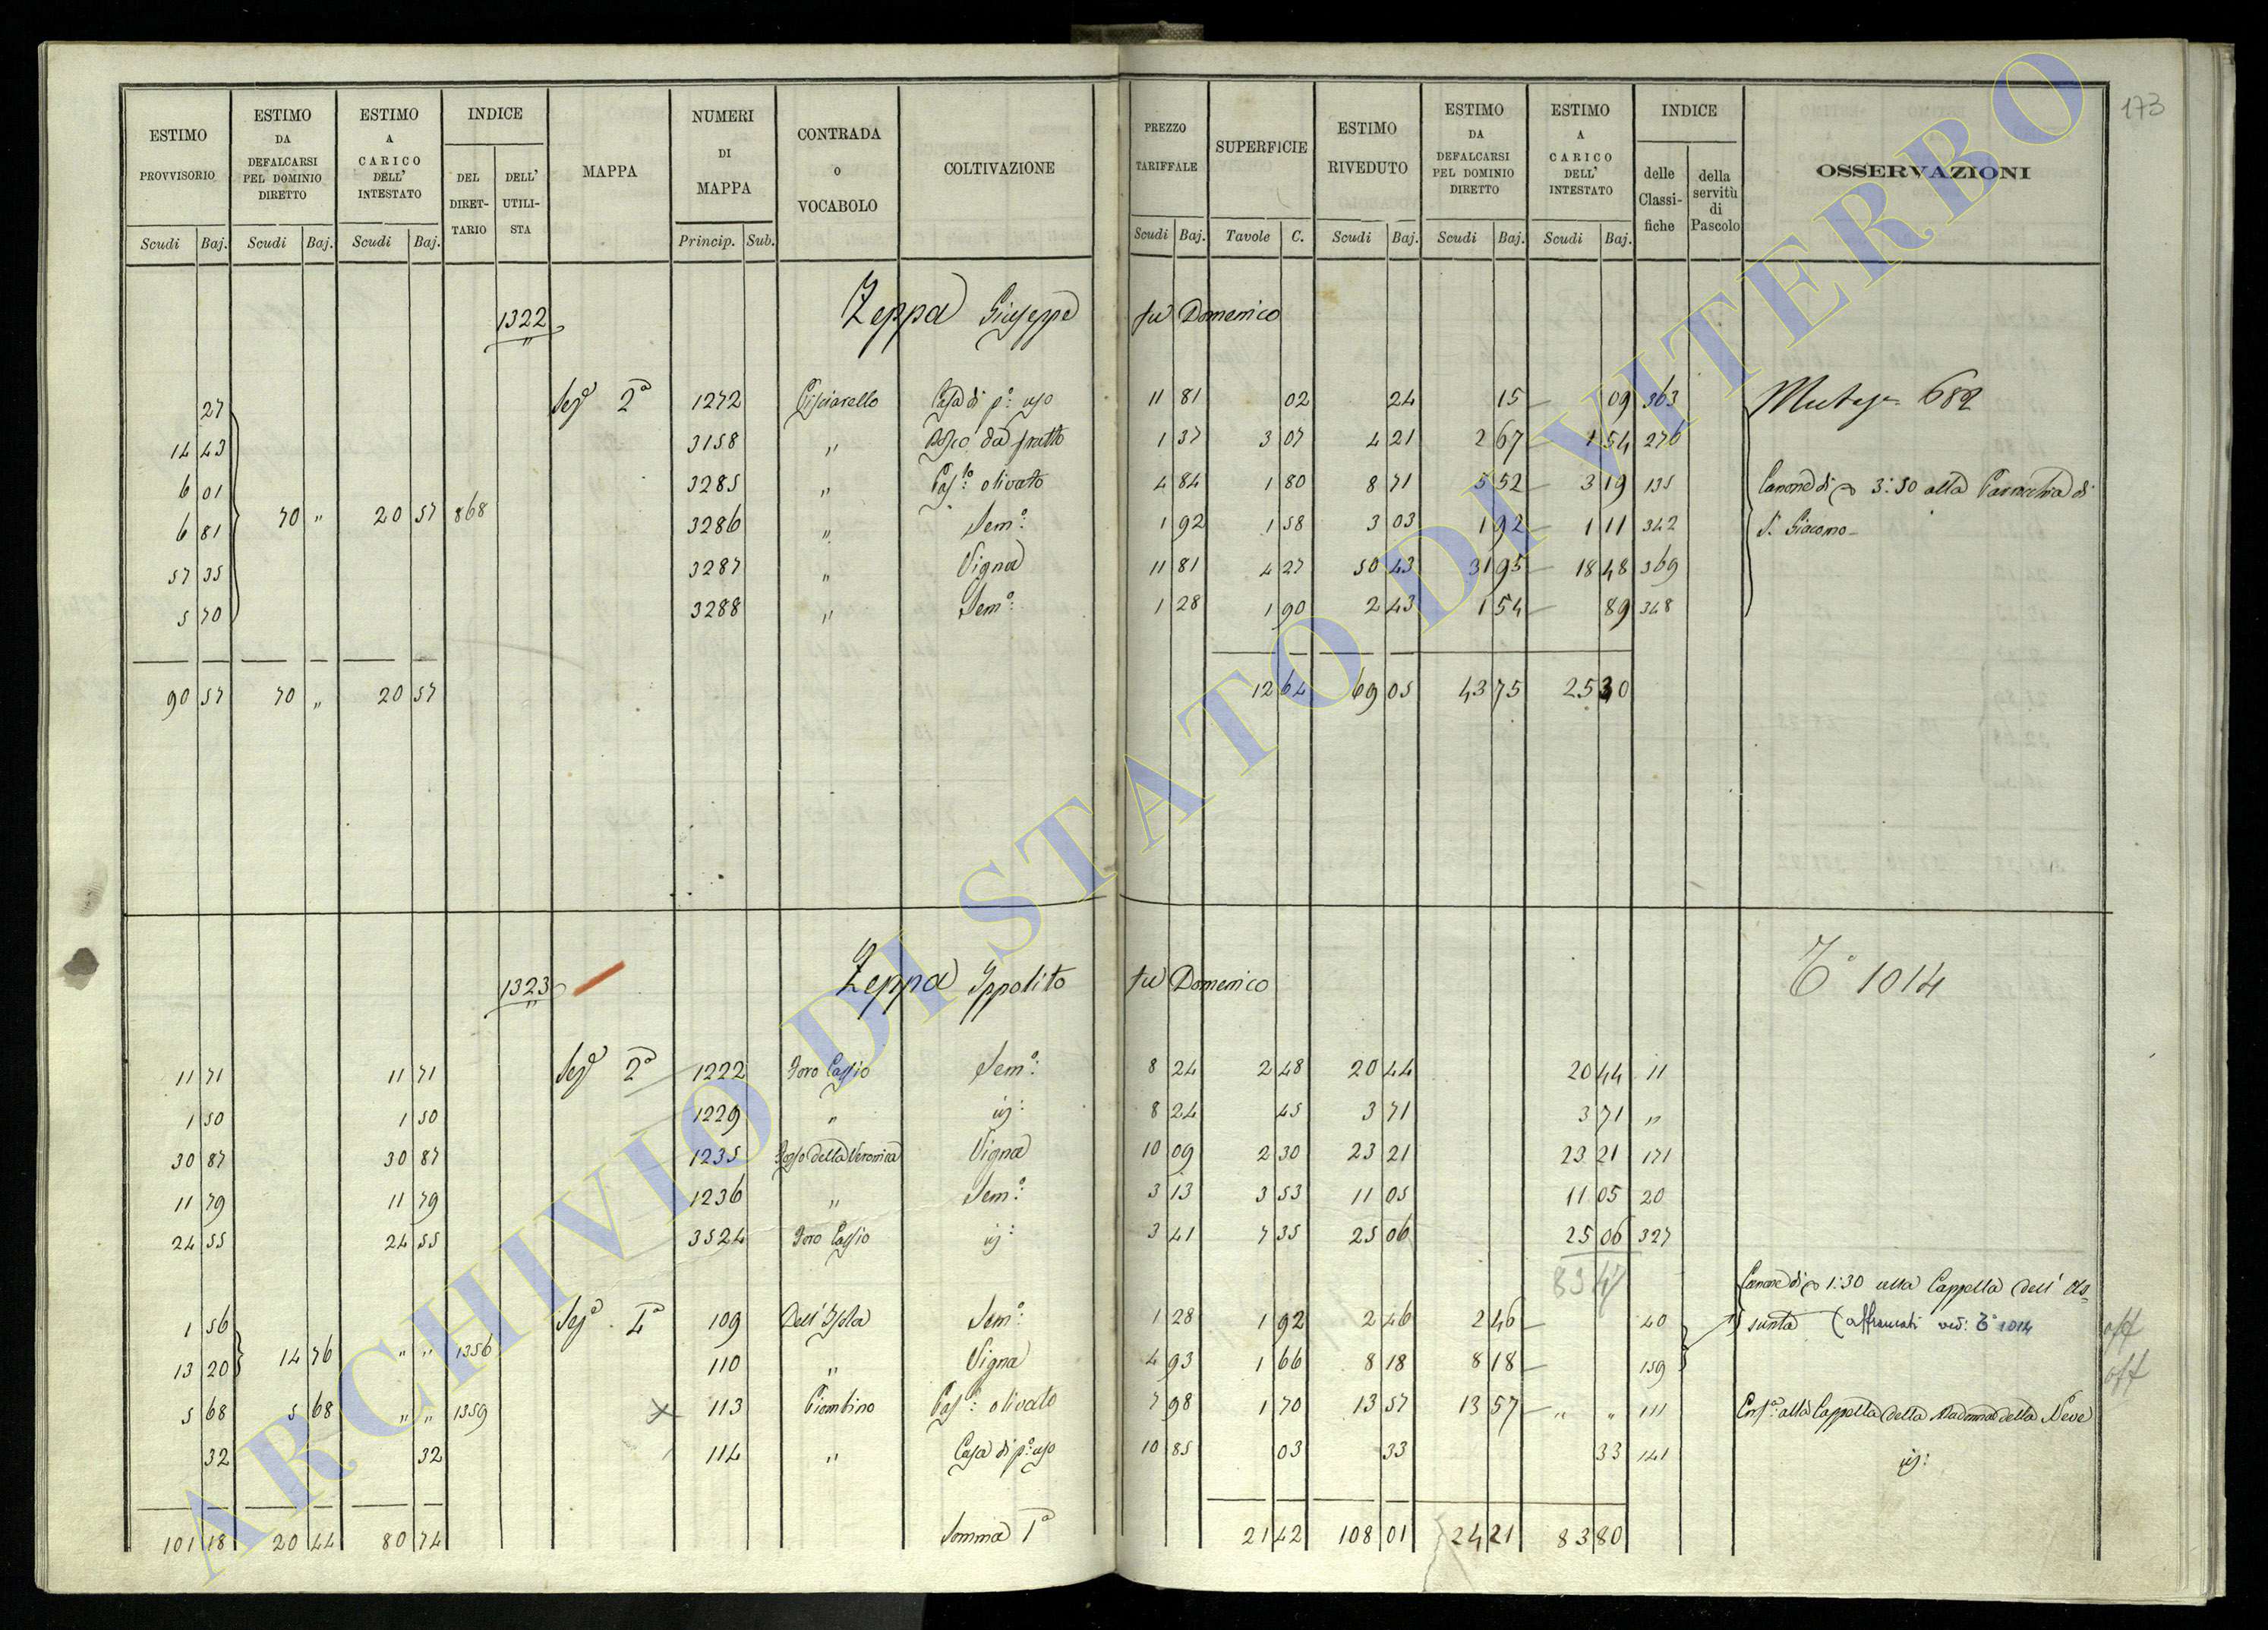 173
ESTIMO PROVVISORIO | ESTIMO DA DEFALCARSI PEL DOMINIO DIRETTO | ESTIMO A CARICO DELL' INTESTATO | INDICE DEL DIRET-TARIO | DELL' UTILI-STA | MAPPA | NUMERI DI MAPPA | CONTRADA O VOCABOLO | COLTIVAZIONE | PREZZO TARIFFALE | SUPERFICIE | ESTIMO RIVEDUTO | ESTIMO DA DEFALCARSI PEL DOMINIO DIRETTO | ESTIMO A CARICO DELL' INTESTATO | INDICE delle Classi-fiche | della servitù di Pascolo | OSSERVAZIONI
Scudi Baj. | Scudi Baj. | Scudi Baj. | Princip. Sub. | Scudi Baj. | Tavole C. | Scudi Baj. | Scudi Baj. | Scudi Baj.
1322 Zeppa Giuseppe fu Domenico
27 | Sez.e 2a | 1272 | Casa di p.o uso | 11 81 | 02 | 24 | 15 | 09 | 363
14 43 | 3158 | " | Bosco da frutto | 1 37 | 3 07 | 4 21 | 2 67 | 1 54 | 276
6 01 | 3285 | " | Pas.lo olivato | 4 84 | 1 80 | 8 71 | 5 52 | 3 19 | 135 | Canone di 3:50 alla Parrocchia di
6 81 | 70 " | 20 57 | 868 | 3286 | " | Sem.o | 1 92 | 1 58 | 3 03 | 1 92 | 1 11 | 342 | S. Giacomo
57 35 | 3287 | " | Vigna | 11 81 | 4 27 | 50 43 | 31 95 | 18 48 | 369
5 70 | 3288 | " | Sem.o | 1 28 | 1 90 | 2 43 | 1 54 | 89 | 348
90 57 | 70 " | 20 57 | 12 64 | 69 05 | 43 75 | 25 30
1323 Zeppa Ippolito fu Domenico | T.o 1014
11 71 | 11 71 | Sez.e 2a | 1222 | Foro Cassio | Sem.o | 8 24 | 2 48 | 20 44 | 20 44 | 11
1 50 | 1 50 | 1229 | " | id: | 8 24 | 45 | 3 71 | 3 71 | "
30 87 | 30 87 | 1235 | Fosso della Veronica | Vigna | 10 09 | 2 30 | 23 21 | 23 21 | 171
11 79 | 11 79 | 1236 | " | Sem.o | 3 13 | 3 53 | 11 05 | 11 05 | 20
24 55 | 24 55 | 3524 | Foro Cassio | id: | 3 41 | 7 35 | 25 06 | 25 06 | 327
83 47
Canone di 1:30 alla Cappella dell' As=
1 56 | Sez.e 4a | 109 | Dell' Isola | Sem.o | 1 28 | 1 92 | 2 46 | 2 46 | 40 | sunta (affrancati ved: T.o 1014 | off
13 20 | 14 76 | " " | 1356 | 110 | " | Vigna | 4 93 | 1 66 | 8 18 | 8 18 | 159 | off
5 68 | 5 68 | " " | 1359 | 113 | Piombino | Pas.lo olivato | 7 98 | 1 70 | 13 57 | 13 57 | " " | 111 | alla Cappella della Madonna della Neve
32 | 32 | 114 | " | Casa di p.o uso | 10 85 | 03 | 33 | 33 | 141 | id:
101 18 | 20 44 | 80 74 | Somma 1a | 21 42 | 108 01 | 24 21 | 83 80
ARCHIVIO DI STATO DI VITERBO